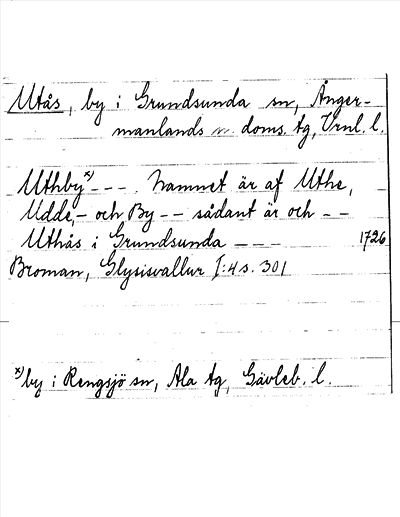 Utås, by i Grundsunda sn, Ånger-
manlands n. doms. tg, Vrnl. l.
Uthby x) - - - . Namnet är af Uthe,
Udde, - och By - - sådant är och - -
Uthås i Grundsunda - - - 1726
Broman, Glysisvallur I:4 s. 301
x) by i Rengsjö sn, Ala tg, Gävleb. l.